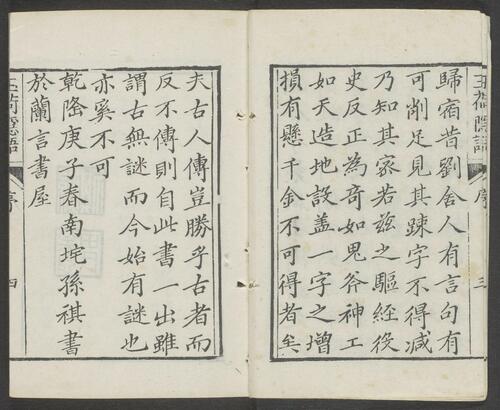 玉荷隱語 序 三
歸宿昔劉舍人有言句有
可削足見其踈字不得減
乃知其密若茲之驅經役
史反正為奇如鬼斧神工
如天造地設蓋一字之增
損有懸千金不可得者矣
夫古人傳豈勝乎古者而
反不傳則自此書一出雖
謂古無謎而今始有謎也
亦奚不可
乾隆庚子春南垞孫祺書
於蘭言書屋
玉荷隱語 序 四